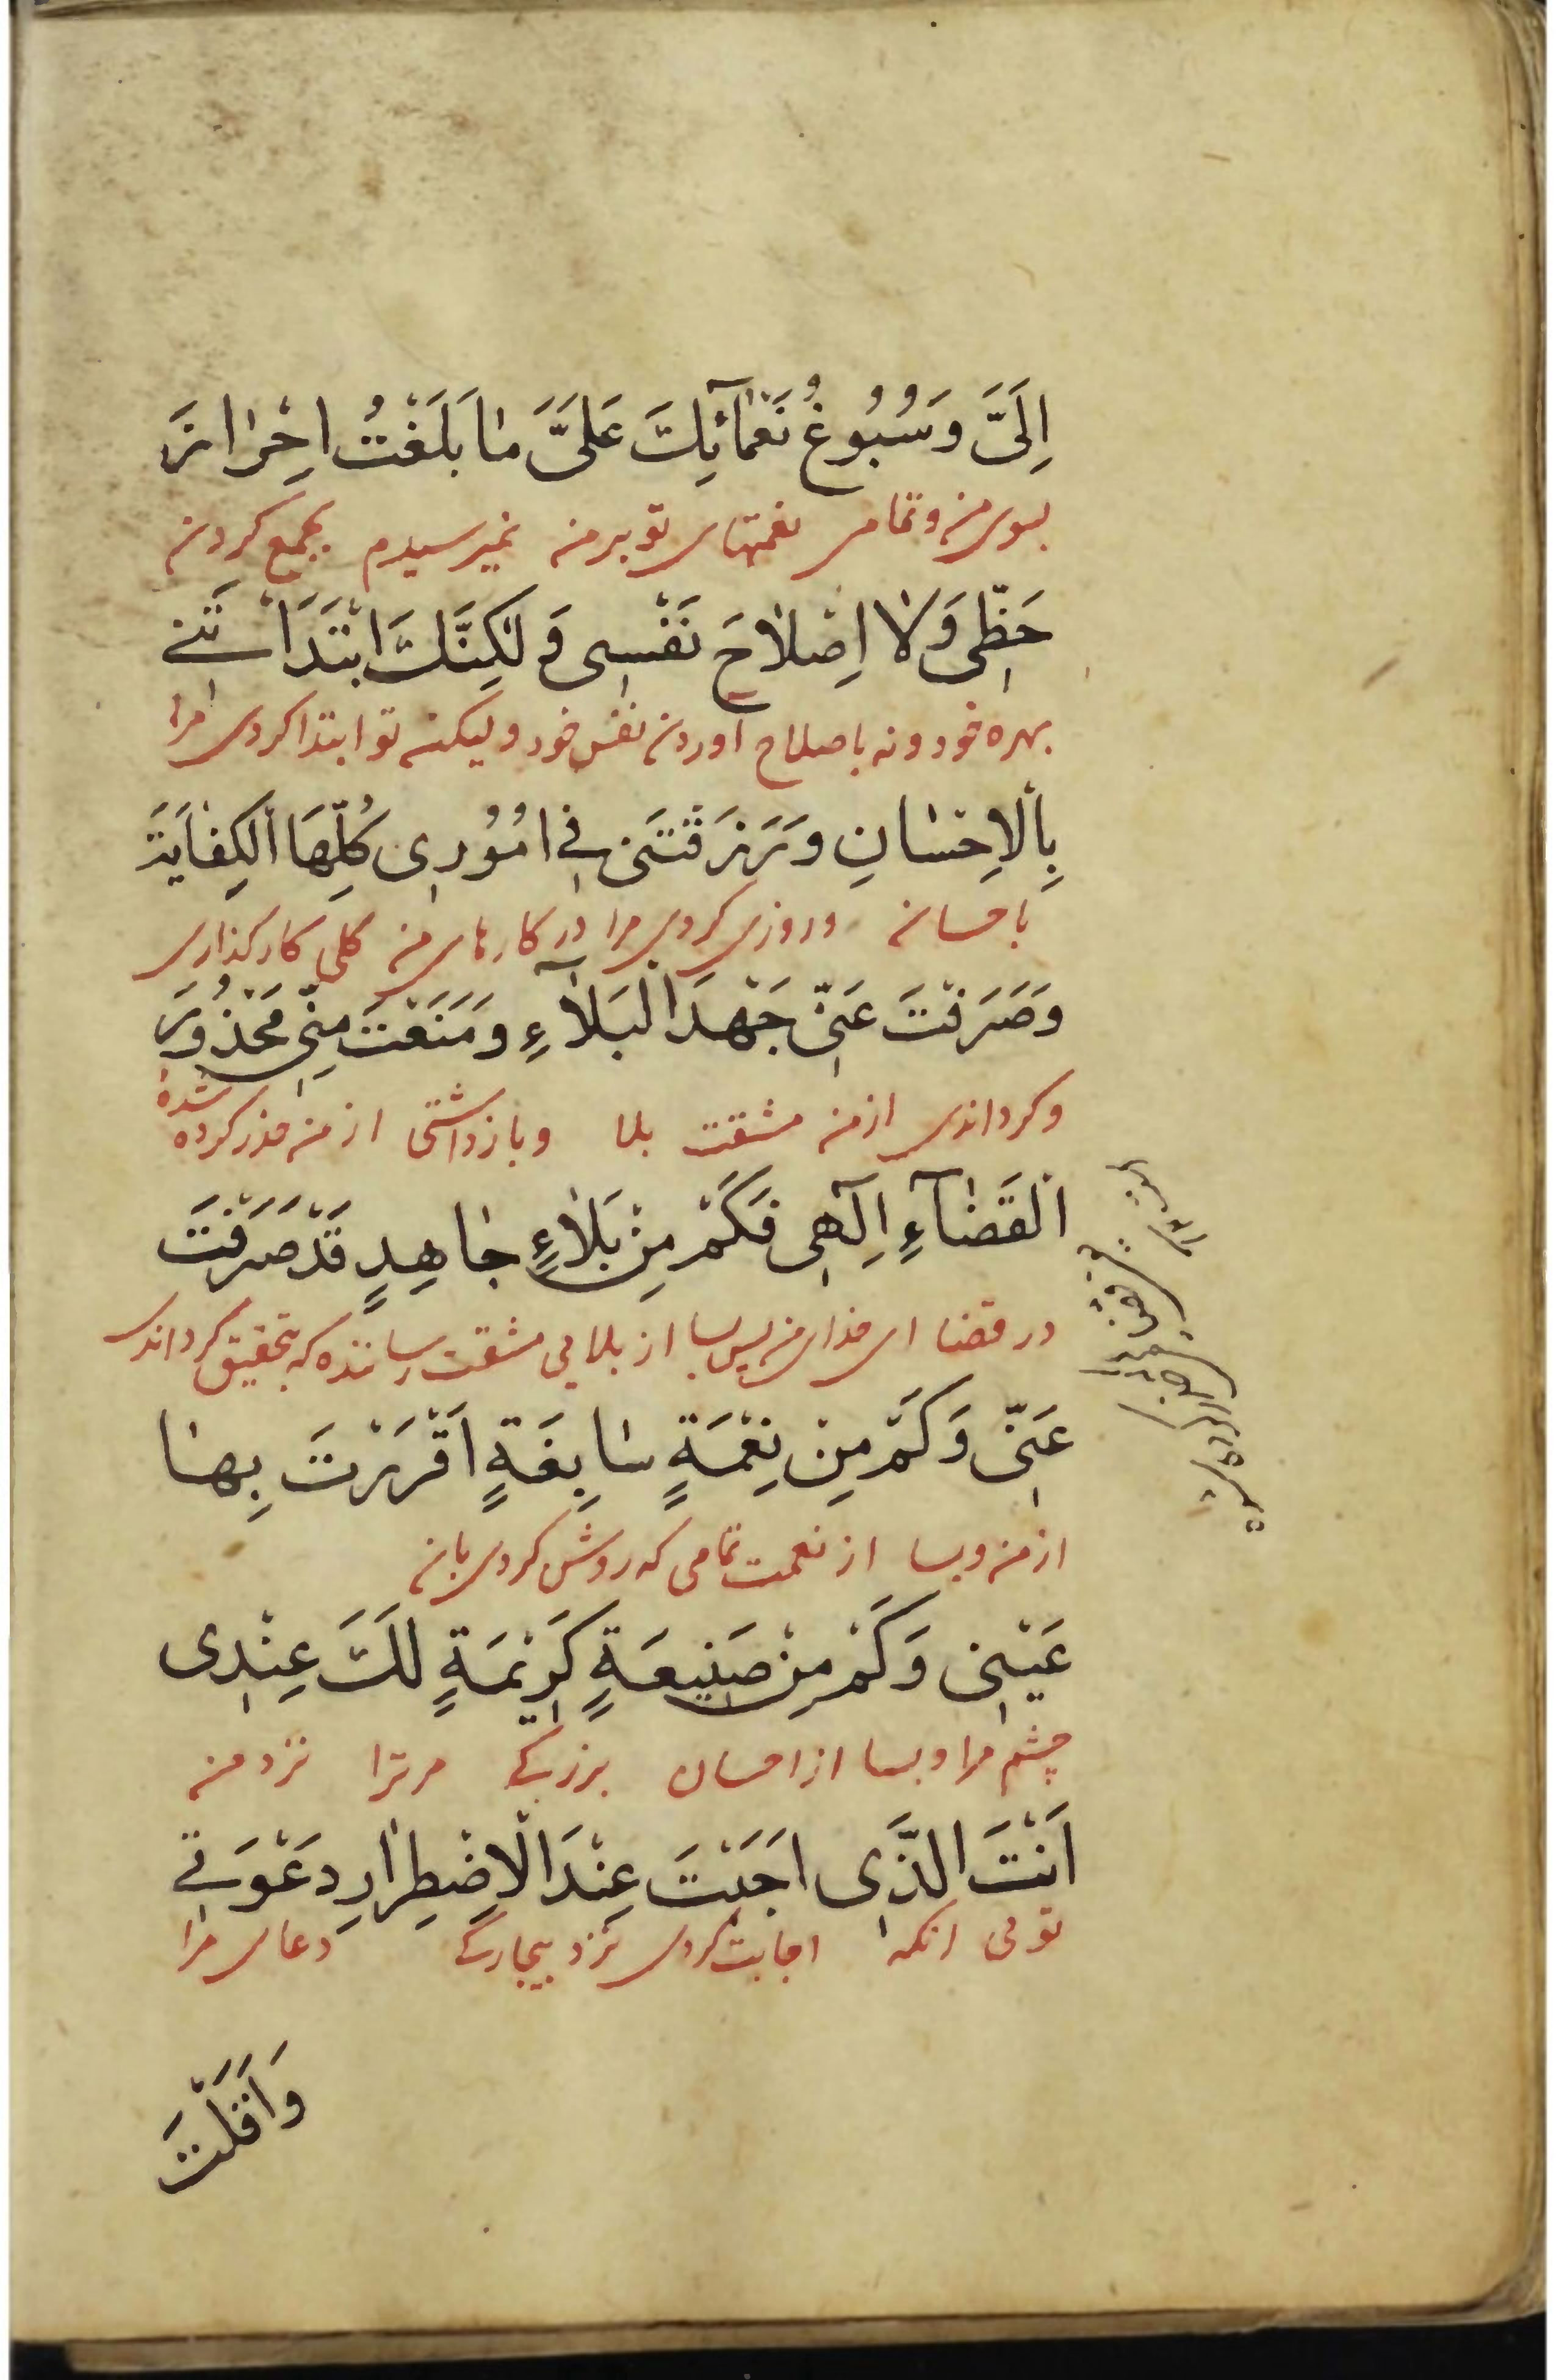 اِلَیَّ وَسُبُوغُ نَعْمَآئِكَ عَلَیَّ مٰا بَلَغْتُ اِحْرٰازَ
بسوی من و تمامی نعمتهای تو بر من نمیرسیدم بجمع کردن
حَظِّی وَلٰا اِصْلٰاحَ نَفْسِی وَ لٰكِنَّكَ ابْتَدَاْتَنِی
بهره خود و نه باصلاح آوردن نفس خود و لیکن تو ابتدا کردی مرا
بِالْاِحْسٰانِ وَرَزَقْتَنِی فِی اُمُوُرِی كُلِّهَا الْكِفٰایَةَ
باحسان و روزی کردی مرا در کارهای من کلی کارگذاری
وَصَرَفْتَ عَنِّی جَهْدَ الْبَلٰآءِ وَمَنَعْتَ مِنِّی مَحْذُوُرَ
و کرداندی از من مشقت بلا و بازداشتی از من حذر کرده شده
الْقَضٰآءِ اِلٰهِی فَكَمْ مِنْ بَلٰاءٍ جٰاهِدٍ قَدْ صَرَفْتَ
در قضا ای خدای من پس بسا از بلایی مشقت رساننده که بتحقیق کرداندی
عَنِّی وَكَمْ مِنْ نِعْمَةٍ سٰابِغَةٍ اَقْرَرْتَ بِهٰا
از من و بسا از نعمت تمامی که روشن کردی بان
عَیْنِی وَكَمْ مِنْ صَنِیعَةٍ كَرِیْمَةٍ لَكَ عِنْدِی
چشم مرا و بسا از احسان بزرگی مر ترا نزد من
اَنْتَ الَّذِی اَجَبْتَ عِنْدَ الْاِضْطِرٰارِ دَعْوَتِی
تویی انکه اجابت کردی نزد بیچارگی دعای مرا
وَاَقَلْتَ